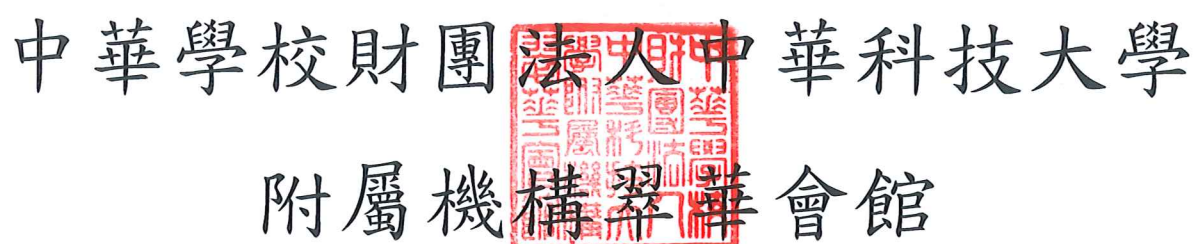 中華學校財團法人中華科技大學
附屬機構翠華會館